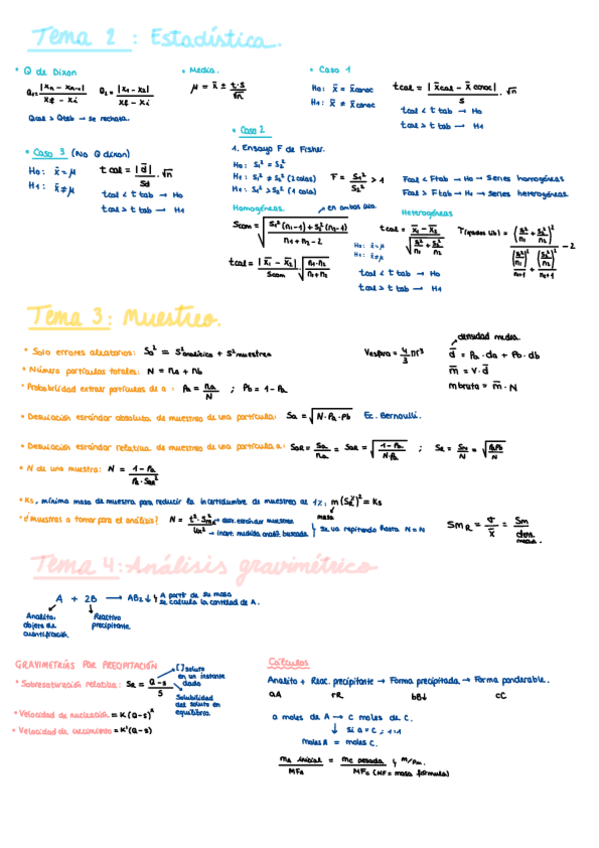 Tema 2 : Estadística.
• Q de Dixon
Q₁= |xn - xn-1| / xf - xi   Q₂ = |x1 - x2| / xf - xi
Qcal > Qtab → se rechaza.
• Media.
μ = x̄ ± t·s / √n
• Caso 1
H0: x̄ = x̄conoc
H1: x̄ ≠ x̄conoc
tcal = |x̄cal - x̄conoc| / s · √n
tcal < t tab → H0
tcal > t tab → H1
• Caso 3 (No Q dixon)
H0: x̄ = μ
H1: x̄ ≠ μ
tcal = |d̄| / Sd · √n
tcal < t tab → H0
tcal > t tab → H1
• Caso 2
1. Ensayo F de Fisher.
H0: S1² = S2²
H1: S1² ≠ S2² (2 colas)
H1: S1² > S2² (1 cola)
F = S1² / S2² > 1
Fcal < Ftab → H0 → Series homogéneas
Fcal > Ftab → H1 → Series heterogéneas
Homogéneas.
Scom = √ S1²(n1-1) + S2²(n2-1) / n1 + n2 - 2
tcal = |x̄1 - x̄2| / Scom √ n1·n2 / n1+n2
→ en ambos
H0: x̄ = μ
H1: x̄ ≠ μ
Heterogéneas
tcal = x̄1 - x̄2 / √ S1²/n1 + S2²/n2
(S1²/n1 + S2²/n2)² / (S1²/n1)²/n1+1 + (S2²/n2)²/n2+1 - 2
tcal < t tab → H0
tcal > t tab → H1
Tema 3: Muestreo.
• Solo errores aleatorios: S0² = S²analítica + S²muestreo
• Número partículas totales: N = na + nb
• Probabilidad extraer partículas de a : Pa = na / N ; Pb = 1 - Pa
Vesfera = 4/3 πr³
densidad media.
d̄ = Pa · da + Pb · db
m̄ = V · d̄
mbruta = m̄ · N
• Desviación estándar absoluta de muestreo de una partícula: Sa = √N·Pa·Pb Ec. Bernoulli.
• Desviación estándar relativa de muestreo de una partícula a: SaR = Sa / na = SaR = √ 1-Pa / N·Pa ; Se = Sn / N = √ PaPb / N
• N de una muestra: N = 1 - Pa / Pa · SaR²
• Ks, mínima masa de muestra para reducir la incertidumbre de muestreo al 1%, m(S%)² = Ks
masa
• ¿Muestras a tomar para el análisis? N = t² · Sm² / Um²
→ desv. estándar muestreo
→ incert. medida analít. buscada
Se va repitiendo hasta N = N
SmR = σ / x̄ = Sm / den. media.
Tema 4: Análisis gravimétrico
A + 2B → AB2 ↓ A partir de su masa
se calcula la cantidad de A.
Analito.
objeto de
cuantificación
Reactivo
precipitante.
GRAVIMETRÍAS POR PRECIPITACIÓN
• Sobresaturación relativa: SR = Q-s / S
[ ] soluto
en un instante
dado
Solubilidad
del soluto en
equilibrio.
• Velocidad de nucleación = K(Q-s)ⁿ
• Velocidad de crecimiento = K'(Q-s)
Cálculos
Analito + Reac. precipitante → Forma precipitada → Forma ponderable.
aA rR bB↓ cC
a moles de A → c moles de C.
↓ si a = c ; 1:1
moles A = moles C.
ma inicial / MFa = mc pesada / MFc (MF = masa fórmula) } m/Pm.